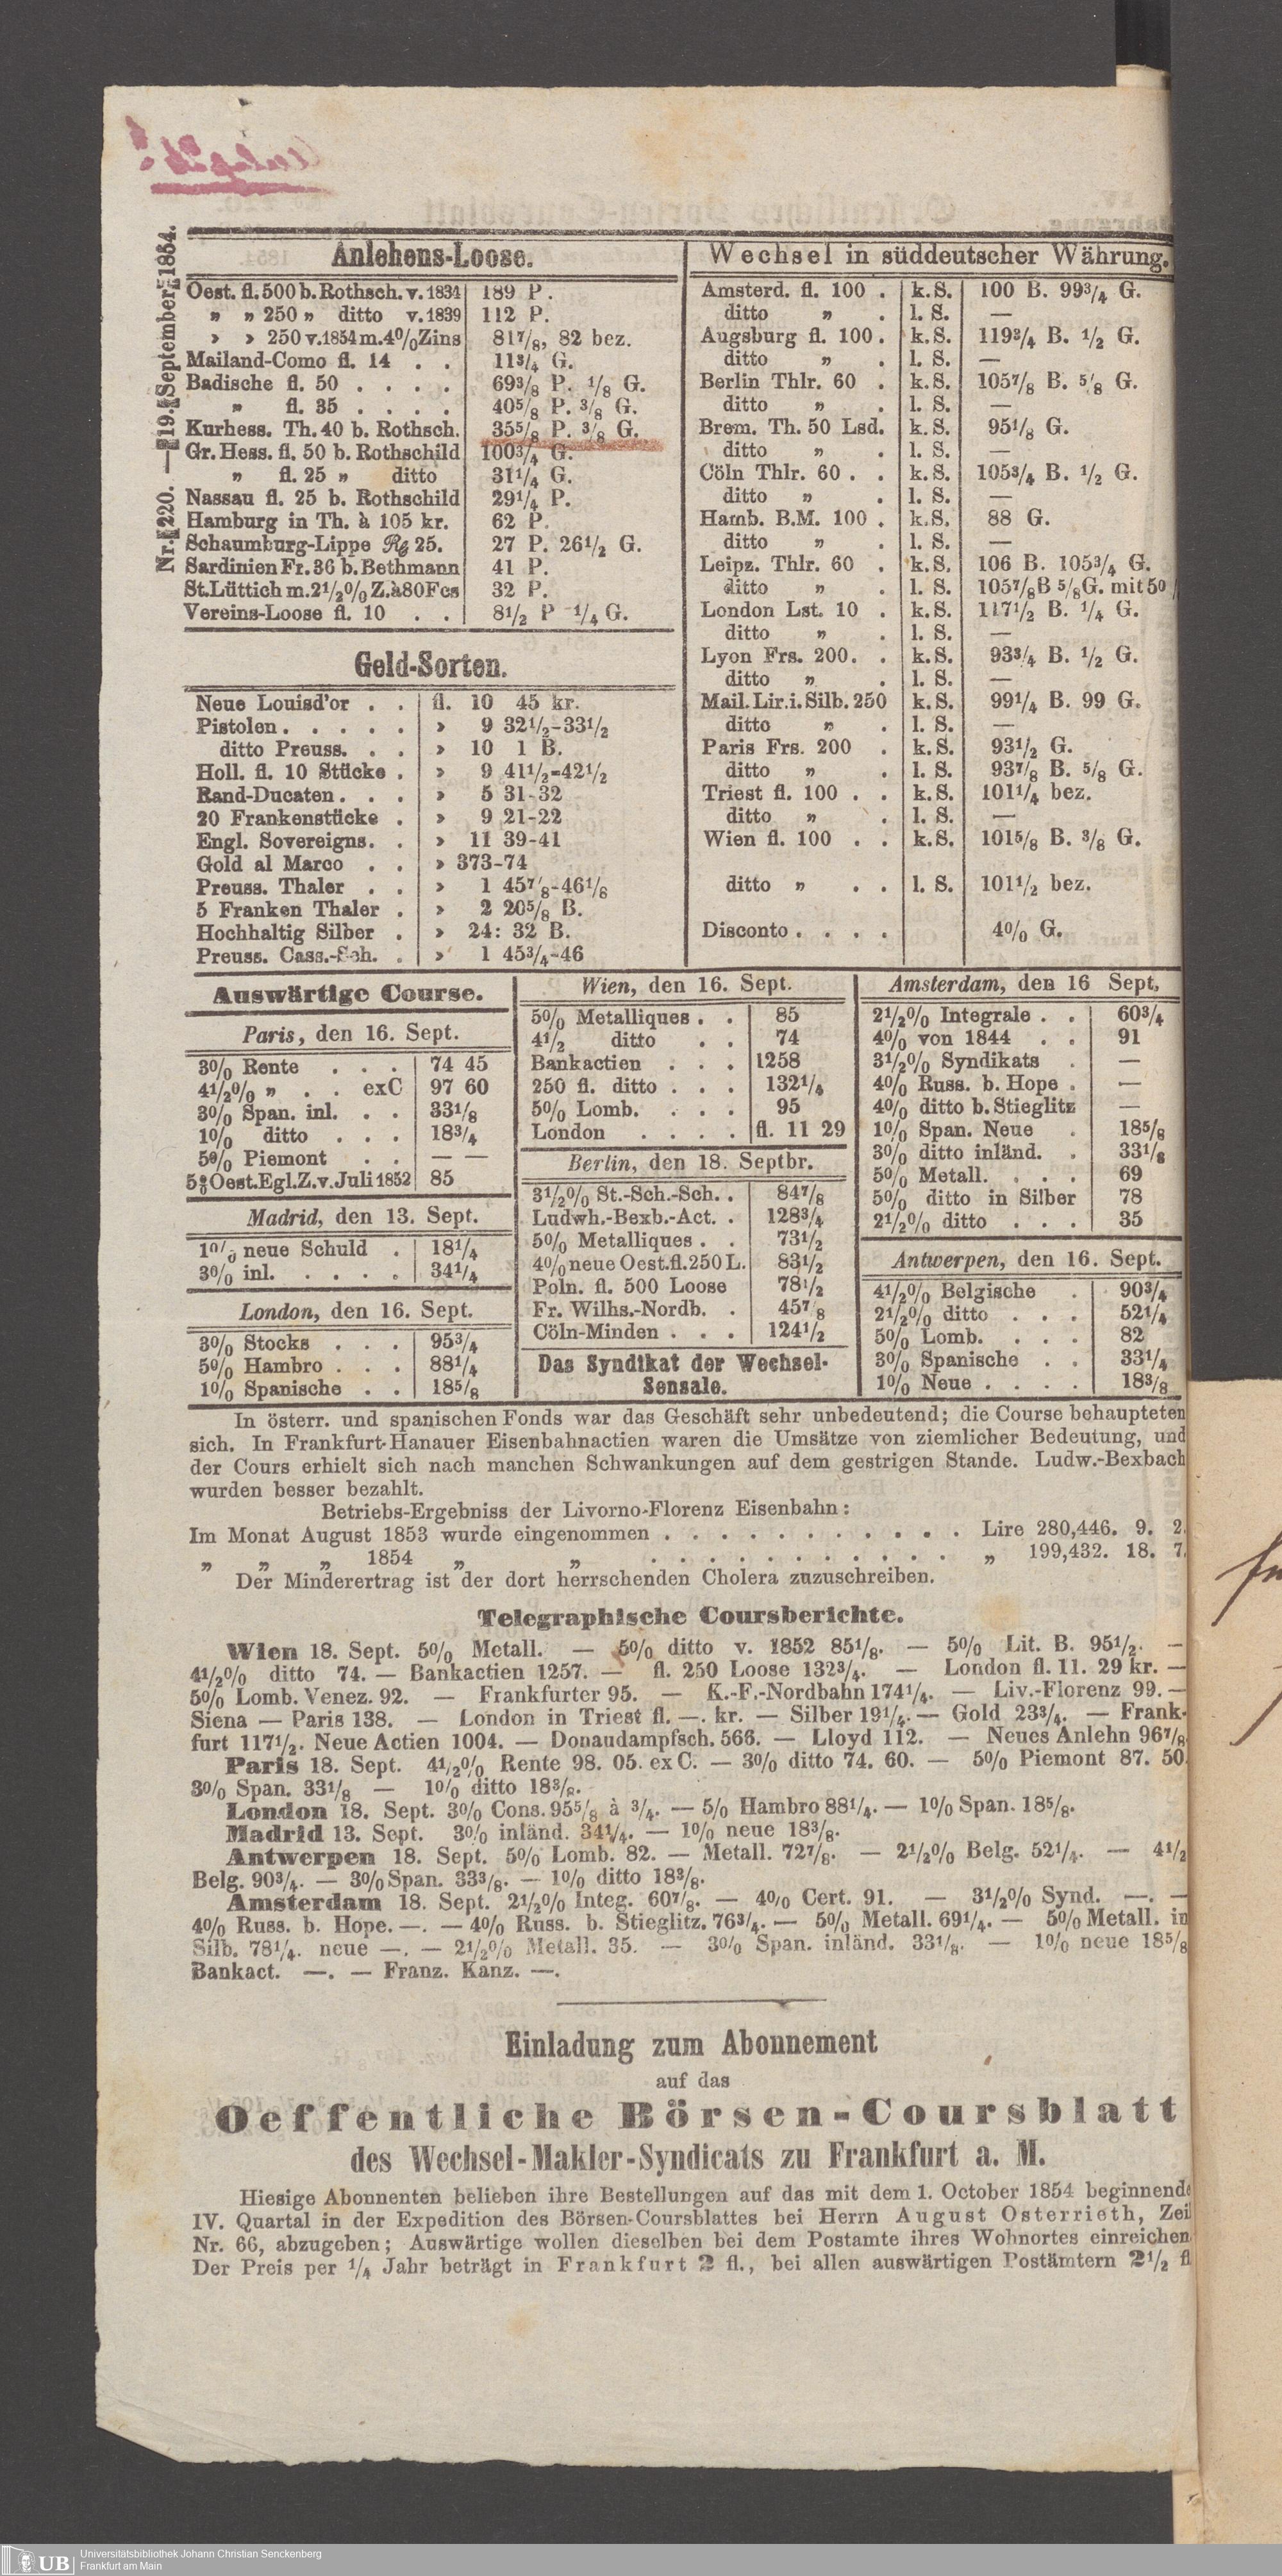 Nr. 220. — 19. September 1854.
Anlehens-Loose.
Oest. fl. 500 b. Rothsch. v. 1834 189 P.
„ „ 250 „ ditto v. 1839 112 P.
» » 250 v. 1854 m. 4% Zins 81⅞, 82 bez.
Mailand-Como fl. 14 . . 11¾ G.
Badische fl. 50 . . . . 69⅜ P. ⅛ G.
„ fl. 35 . . . . 40⅝ P. ⅜ G.
Kurhess. Th. 40 b. Rothsch. 35⅝ P. ⅜ G.
Gr. Hess. fl. 50 b. Rothschild 100¾ G.
„ fl. 25 „ ditto 31¼ G.
Nassau fl. 25 b. Rothschild 29¼ P.
Hamburg in Th. à 105 kr. 62 P.
Schaumburg-Lippe 25. 27 P. 26½ G.
Sardinien Fr. 36 b. Bethmann 41 P.
St. Lüttich m. 2½% Z. à 80 Fcs 32 P.
Vereins-Loose fl. 10 . . 8½ P ¼ G.
Geld-Sorten.
Neue Louisd'or . . fl. 10 45 kr.
Pistolen . . . . . » 9 32½-33½
ditto Preuss. . . » 10 1 B.
Holl. fl. 10 Stücke . » 9 41½-42½
Rand-Ducaten . . . » 5 31-32
20 Frankenstücke . » 9 21-22
Engl. Sovereigns . . » 11 39-41
Gold al Marco . . » 373-74
Preuss. Thaler . . » 1 45⅞-46⅛
5 Franken Thaler . » 2 20⅝ B.
Hochhaltig Silber . » 24: 32 B.
Preuss. Cass.-Sch. . » 1 45¾-46
Wechsel in süddeutscher Währung.
Amsterd. fl. 100 . k. S. 100 B. 99¾ G.
ditto „ . l. S. —
Augsburg fl. 100 . k. S. 119¾ B. ½ G.
ditto „ . l. S. —
Berlin Thlr. 60 . k. S. 105⅞ B. ⅝ G.
ditto „ . l. S. —
Brem. Th. 50 Lsd. k. S. 95⅛ G.
ditto „ . l. S. —
Cöln Thlr. 60 . . k. S. 105¾ B. ½ G.
ditto „ . l. S. —
Hamb. B.M. 100 . k. S. 88 G.
ditto „ . l. S. —
Leipz. Thlr. 60 . k. S. 106 B. 105¾ G.
ditto „ . l. S. 105⅞ B ⅝ G. mit 50
London Lst. 10 . k. S. 117½ B. ¼ G.
ditto „ . l. S. —
Lyon Frs. 200. . k. S. 93¾ B. ½ G.
ditto „ . l. S. —
Mail. Lir. i. Silb. 250 k. S. 99¼ B. 99 G.
ditto „ . l. S. —
Paris Frs. 200 . k. S. 93½ G.
ditto „ . l. S. 93⅞ B. ⅝ G.
Triest fl. 100 . . k. S. 101¼ bez.
ditto „ . l. S. —
Wien fl. 100 . . k. S. 101⅝ B. ⅜ G.
ditto „ . . l. S. 101½ bez.
Disconto . . . . 4% G.
Auswärtige Course.
Paris, den 16. Sept.
3% Rente . . . 74 45
4½% „ . . exC 97 60
3% Span. inl. . . 33⅛
1% ditto . . . 18¾
5% Piemont . . — —
5% Oest. Egl. Z. v. Juli 1852 85
Madrid, den 13. Sept.
1% neue Schuld . 18¼
3% inl. . . . . 34¼
London, den 16. Sept.
3% Stocks . . . 95¾
5% Hambro . . . 88¼
1% Spanische . . 18⅝
Wien, den 16. Sept.
5% Metalliques . . 85
4½ ditto . . 74
Bankactien . . . 1258
250 fl. ditto . . . 132¼
5% Lomb. . . . 95
London . . . . fl. 11 29
Berlin, den 18. Septbr.
3½% St.-Sch.-Sch. . 84⅞
Ludwh.-Bexb.-Act. . 128¾
5% Metalliques . . 73½
4% neue Oest. fl. 250 L. 83½
Poln. fl. 500 Loose 78½
Fr. Wilhs.-Nordb. . 45⅞
Cöln-Minden . . . 124½
Das Syndikat der Wechsel-
Sensale.
Amsterdam, den 16 Sept.
2½% Integrale . . 60¾
4% von 1844 . . 91
3½% Syndikats . —
4% Russ. b. Hope . —
4% ditto b. Stieglitz —
1% Span. Neue . 18⅝
3% ditto inländ. . 33⅛
5% Metall. . . . 69
5% ditto in Silber 78
2½% ditto . . . 35
Antwerpen, den 16. Sept.
4½% Belgische . 90¾
2½% ditto . . . 52¼
5% Lomb. . . . 82
3% Spanische . . 33¼
1% Neue . . . . 18⅜
In österr. und spanischen Fonds war das Geschäft sehr unbedeutend; die Course behaupteten
sich. In Frankfurt-Hanauer Eisenbahnactien waren die Umsätze von ziemlicher Bedeutung, und
der Cours erhielt sich nach manchen Schwankungen auf dem gestrigen Stande. Ludw.-Bexbach
wurden besser bezahlt.
Betriebs-Ergebniss der Livorno-Florenz Eisenbahn:
Im Monat August 1853 wurde eingenommen . . . . . . . . . . . Lire 280,446. 9. 2.
„ „ „ 1854 „ „ . . . . . . . . . . . „ 199,432. 18. 7.
Der Minderertrag ist der dort herrschenden Cholera zuzuschreiben.
Telegraphische Coursberichte.
Wien 18. Sept. 5% Metall. — 5% ditto v. 1852 85⅛. — 5% Lit. B. 95½. —
4½% ditto 74. — Bankactien 1257. — fl. 250 Loose 132¾. — London fl. 11. 29 kr. —
5% Lomb. Venez. 92. — Frankfurter 95. — K.-F.-Nordbahn 174¼. — Liv.-Florenz 99. —
Siena — Paris 138. — London in Triest fl. —. kr. — Silber 19¼. — Gold 23¾. — Frank-
furt 117½. Neue Actien 1004. — Donaudampfsch. 566. — Lloyd 112. — Neues Anlehn 96⅞.
Paris 18. Sept. 4½% Rente 98. 05. ex C. — 3% ditto 74. 60. — 5% Piemont 87. 50.
3% Span. 33⅛ — 1% ditto 18⅜.
London 18. Sept. 3% Cons. 95⅝ à ¾. — 5% Hambro 88¼. — 1% Span. 18⅝.
Madrid 13. Sept. 3% inländ. 34¼. — 1% neue 18⅜.
Antwerpen 18. Sept. 5% Lomb. 82. — Metall. 72⅞. — 2½% Belg. 52¼. — 4½
Belg. 90¾. — 3% Span. 33⅜. — 1% ditto 18⅜.
Amsterdam 18. Sept. 2½% Integ. 60⅞. — 4% Cert. 91. — 3½% Synd. —. —
4% Russ. b. Hope. —. — 4% Russ. b. Stieglitz. 76¾. — 5% Metall. 69¼. — 5% Metall. in
Silb. 78¼. neue —. — 2½% Metall. 35. — 3% Span. inländ. 33⅛. — 1% neue 18⅝
Bankact. —. — Franz. Kanz. —.
Einladung zum Abonnement
auf das
Oeffentliche Börsen-Coursblatt
des Wechsel-Makler-Syndicats zu Frankfurt a. M.
Hiesige Abonnenten belieben ihre Bestellungen auf das mit dem 1. October 1854 beginnende
IV. Quartal in der Expedition des Börsen-Coursblattes bei Herrn August Osterrieth, Zeil
Nr. 66, abzugeben; Auswärtige wollen dieselben bei dem Postamte ihres Wohnortes einreichen.
Der Preis per ¼ Jahr beträgt in Frankfurt 2 fl., bei allen auswärtigen Postämtern 2½ fl
UB Universitätsbibliothek Johann Christian Senckenberg
Frankfurt am Main